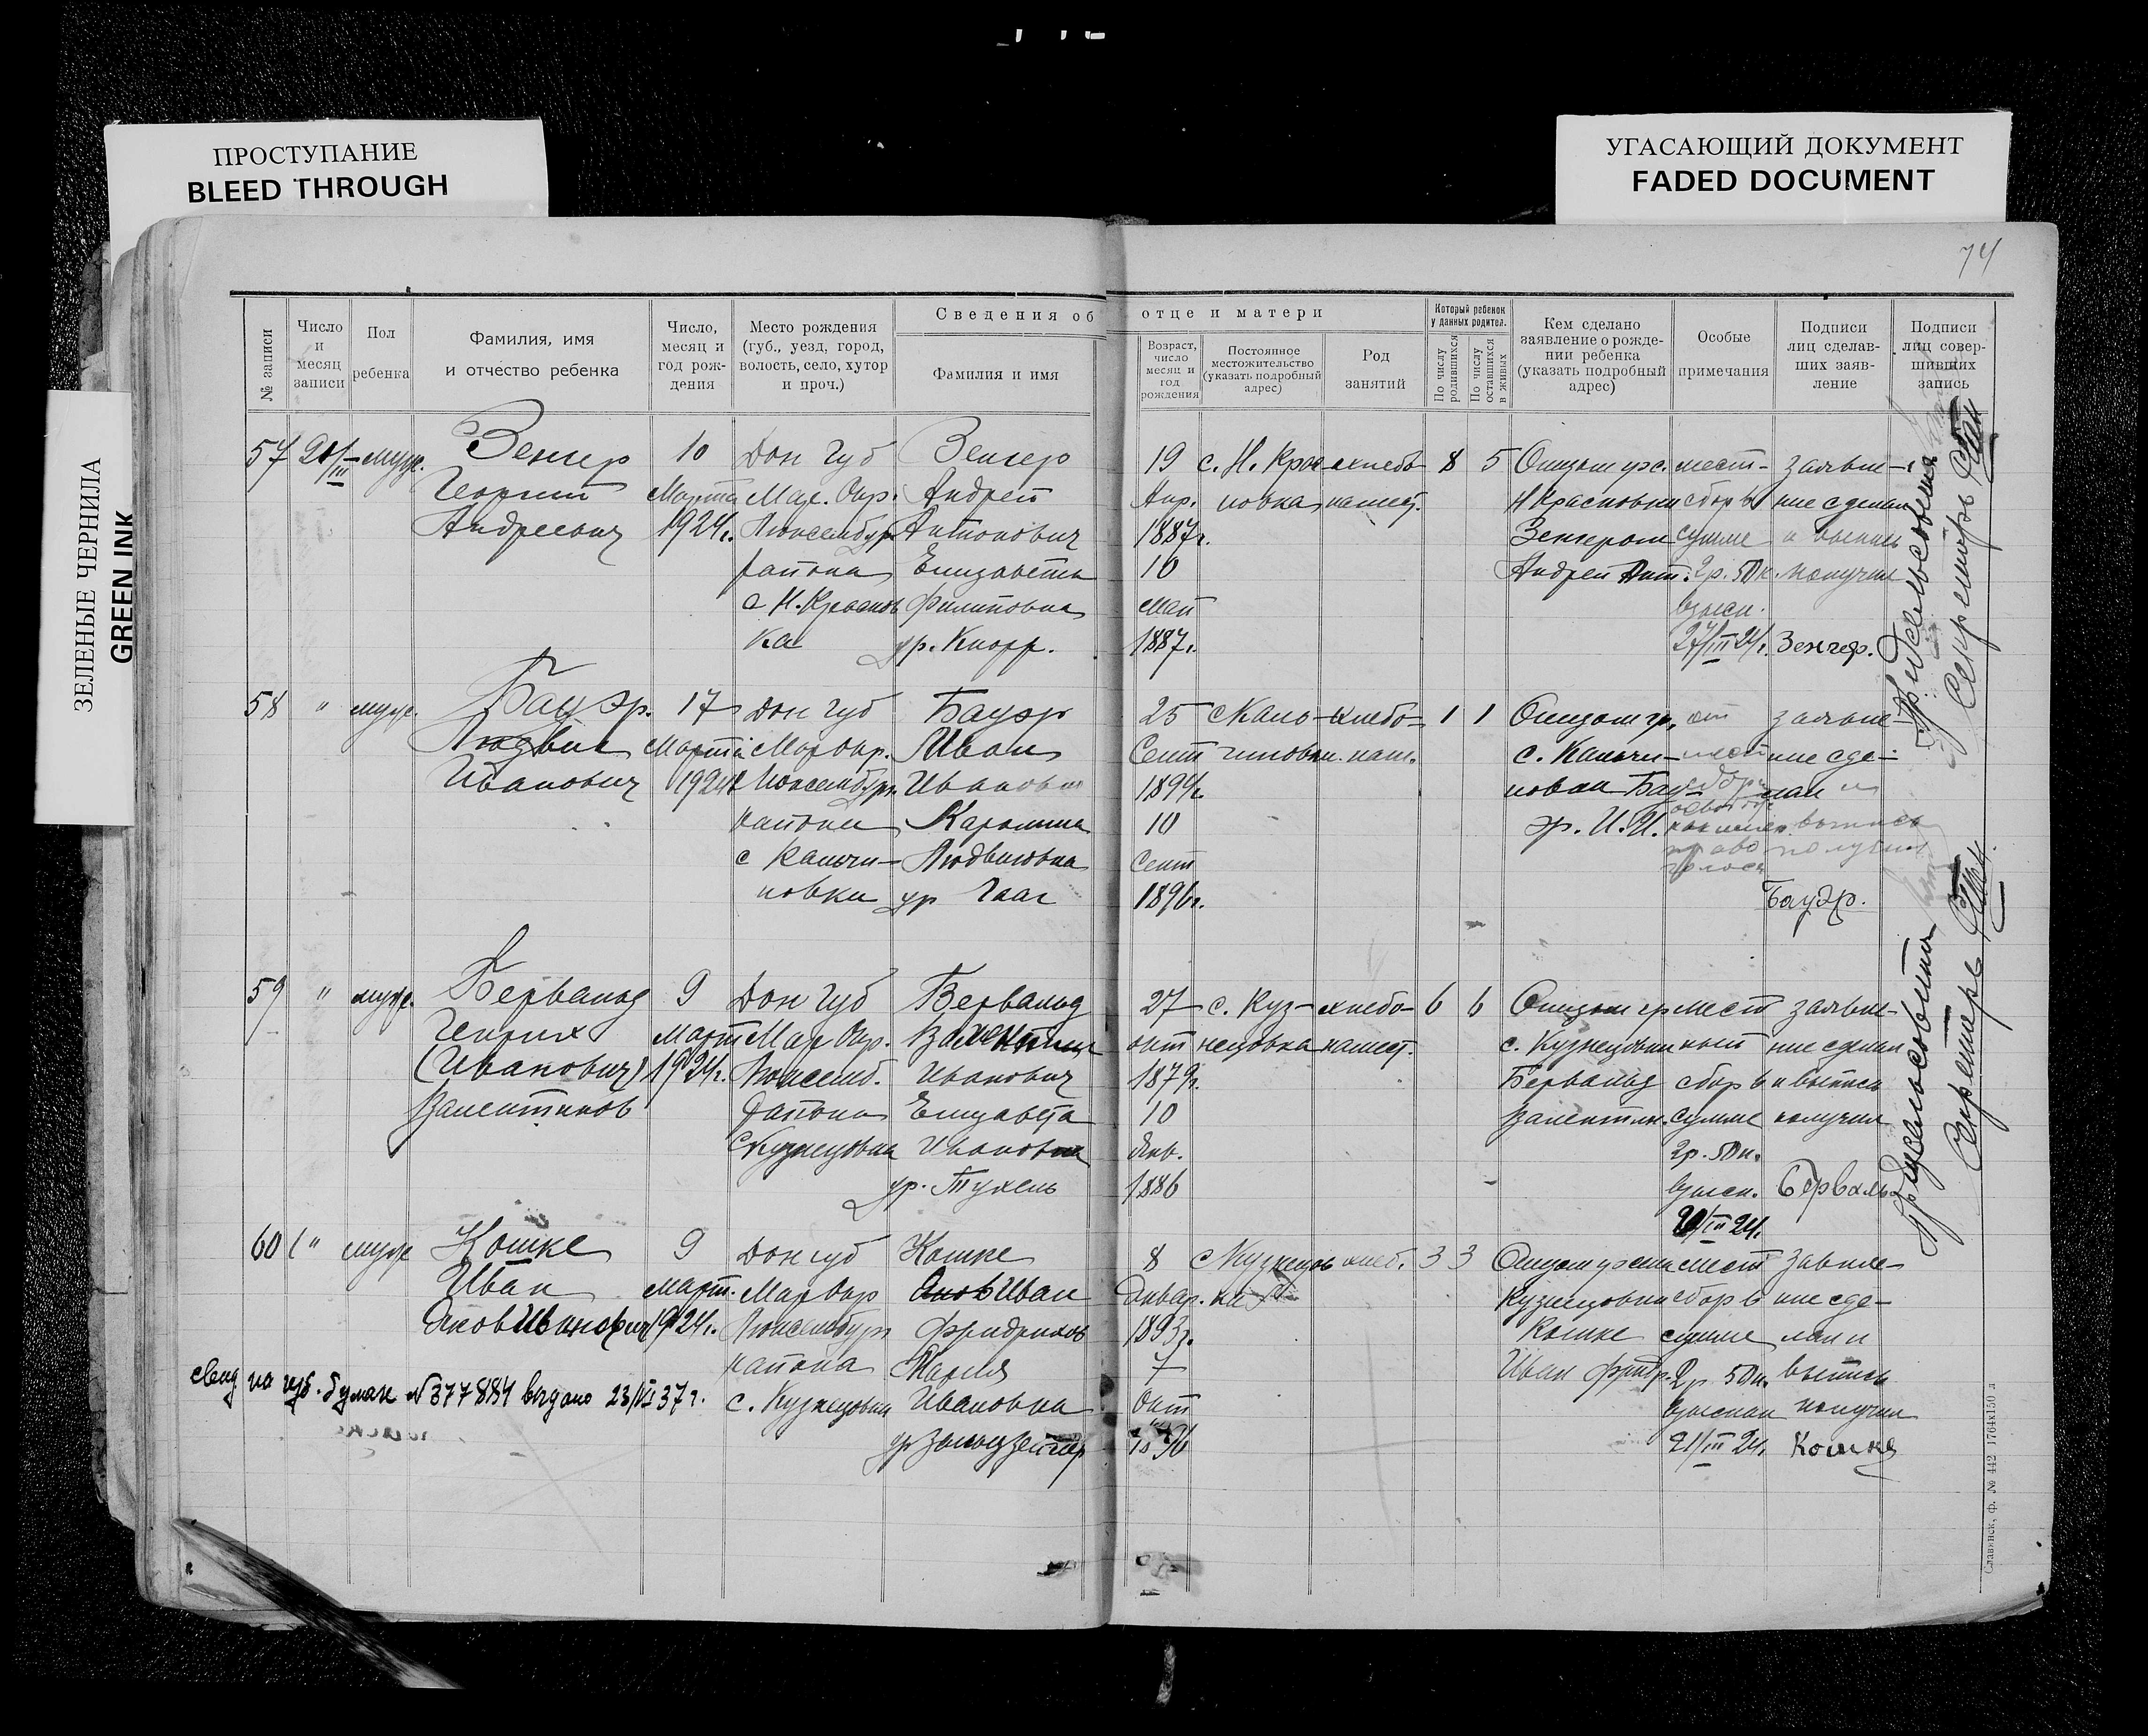 ПРОСТУПАНИЕ
BLEED THROUGH
УГАСАЮЩИЙ ДОКУМЕНТ
FADED DOCUMENT
ЗЕЛЕНЫЕ ЧЕРНИЛА
GREEN INK
74
№ записи
Число и месяц записи
Пол ребенка
Фамилия, имя и отчество ребенка
Число, месяц и год рождения
Место рождения (губ., уезд, город, волость, село, хутор и проч.)
Сведения об отце и матери
Фамилия и имя
Возраст, число месяц и год рождения
Постоянное местожительство (указать подробный адрес)
Род занятий
Который ребенок у данных родител.
По числу родившихся
По числу оставшихся в живых
Кем сделано заявление о рождении ребенка (указать подробный адрес)
Особые примечания
Подписи лиц сделавших заявление
Подписи лиц совершивших запись
57
муж.
Зенгер
Георгий
Андреевич
10
Марта
1924г.
Дон губ
Мар. Окр.
Люксембург
района
с Н. Краснов
ка
Зенгер
Андрей
Антонович
Елизавета
Филиповна
ур. Кнорр.
19
Апр.
1887г.
10
май
1887г.
с. Н. Крас
новка
хлебо
пашец.
8
5
Отцом
Н Красновки
Зенгером
Андрей Ант.
мест
сбор в
сумме
2р. 50к.
взыск.
27/III 24г.
заявле-
ние сделал
и выпись
получил
Зенгер.
58
"
муж.
Бауэр.
Людвиг
Иванович
17
Марта
1924г
Дон губ
Мар Окр.
Люксембург
района
с Кальчи-
новки
Бауэр
Иван
Иванович
Каролина
Людвиговна
ур Гааг
25
Сент
10
Сент
1896г.
хлебо-
паш.
1
1
Отцом гр.
с. Кальчи-
новки Бау-
эр. И. И.
от
мест
сбор
право
голоса
заявле-
ние сде-
лал и
выпись
получил
Бауэр.
59
"
муж.
Бервальд
Генрих
(Иванович)
Валентинов
9
Март
1924г.
Дон губ
Мар Окр.
Люксемб.
района
с Кузнецовка
Бервальд
Валентин
Иванович
Елизавета
Ивановна
27
окт
1879г.
10
Янв.
1886
с. Куз-
нецовка
хлебо-
пашец.
6
6
Отцом гр
с. Кузнецовки
Бервальд
Валентин.
мест
ный
сбор в
сумме
2р. 50к.
взыск.
заявле-
ние сделал
и выпись
получил
60
"
муж
Кошке
Иван
Яков Иванович
9
март.
1924г.
Дон губ
Мар Окр
Люксембург
района
с. Кузнецовка
Кошке
Яков Иван
Фридрихов
Мария
Ивановна
8
Январ.
1893г.
7
Окт
с Кузнецов
ка
хлеб.
3
3
Кузнецовки
Кошке
Иван Фридр.
мест
сбор в
сумме
2р 50к.
взыскан
21/III 24г.
заявле-
ние сде-
лал и
выпись
получил
Кошке
свид на гуг. бумаге №377884 выдано 23/VI 37 г.
Секретарь
Секретарь
Славянск, ф. № 442 1764х150 л